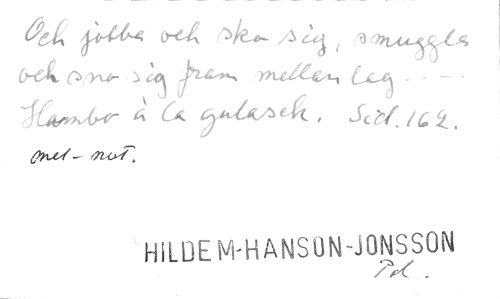 Och jobba och sko sig, smuggla
och sno sig fram mellan lag - - - -
Hambo à la gulasch. Sid. 162.
mel-not.
HILDEM-HANSON-JONSSON
Pd.